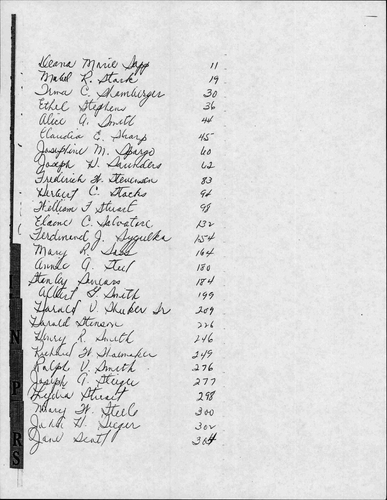 Deana Marie Sapp 11
Mabel R. Stark 19
Irma C. Shamburger 30
Ethel Stephens 36
Alice A. Smith 44
Claudia E. Sharp 45
Josephine M. Spargo 60
Joseph H. Saunders 62
Frederick W. Stevenson 83
Herbert C. Stacks 94
William F. Stuart 98
Elaine C. Salvatore 132
Ferdinand J. Sygulka 154
Mary R. Sass 164
Annie A. Steel 180
Stanley 184
Albert G. Smith 199
Harald V. Shuker Jr 209
Harald Stenson 226
Henry R. Smith 246
Richard W. Shoemaker 249
Ralph V. Smith 276
Joseph A. Steiger 277
Lydia Stewart 298
Mary W. Steele 300
H. Sieger 302
Jane Scott 304
I N P RS